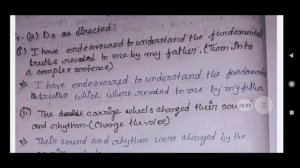 1. (a) Do as directed:
(i) I have endeavoured to understand the fundamental
truths revealed to me by my father. (Turn into
a complex sentence)
I have endeavoured to understand the fundamental
truths which were revealed to me by my father.
(ii) The carriage wheels changed their sound
and rhythm. (Change the voice)
Their sound and rhythm were changed by the